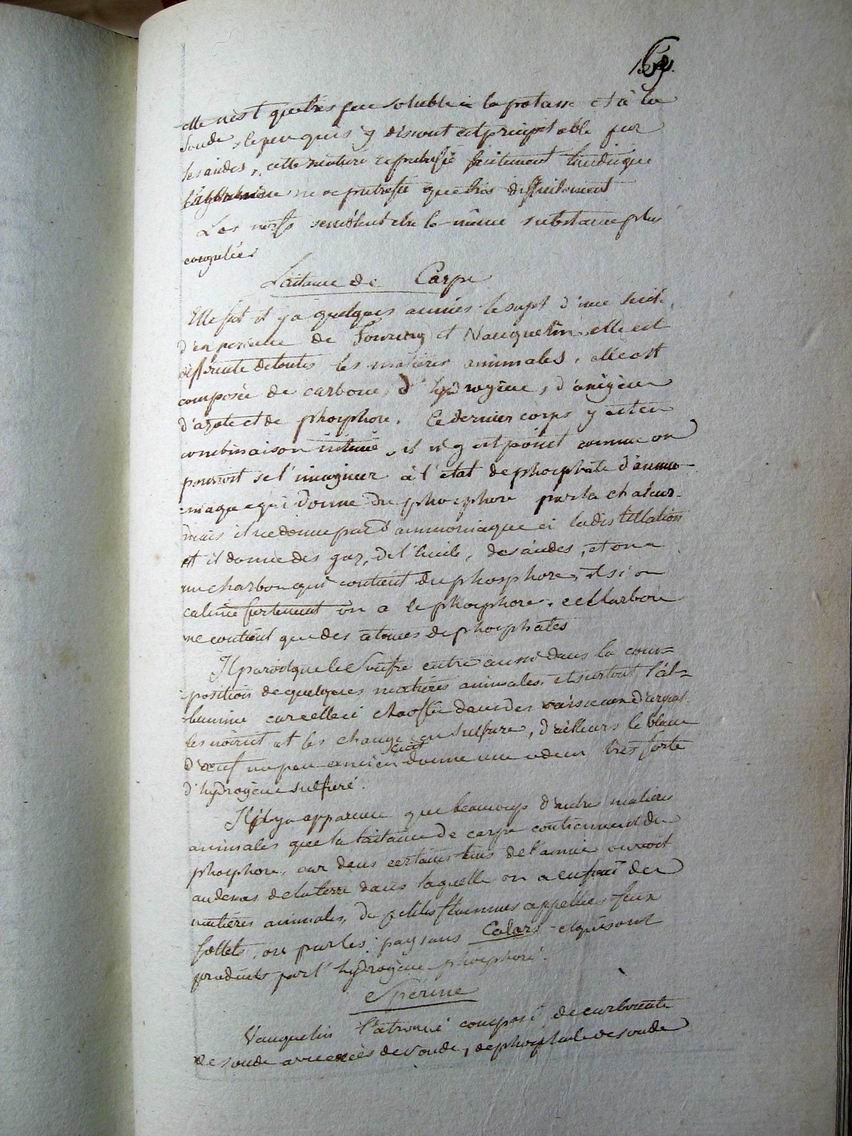 elle n'est que très peu soluble à la potasse et à la
soude, le peu qui s'y dissout est précipitable par
les acides, cette matière se putréfie facilement tandis que
ne se putréfie que très difficilement
Les nerfs semblent être la même substance plus
Laitance de Carpe
Elle fut il y a quelques années le sujet d'une suite
d'expérience de Fourcroy et Vauquelin, elle est
différente de toutes les matières animales, elle est
composée de carbone, d'hydrogène, d'oxigène
d'azote et de phosphore. Ce dernier corps y est en
combinaison intime, il n'y est point comme on
pourroit se l'imaginer à l'état de phosphate d'ammo-
niaque qui donne du phosphore par la chaleur
mais il ne donne pas d'ammoniaque à la distillation
et il donne des gaz, de l'huile, des acides, et on a
un charbon qui contient du phosphore, et si on
calcine fortement on a le phosphore, ce charbon
ne contient que des atomes de phosphates
Il paroit que le Soufre entre aussi dans la com=
position de quelques matières animales, et surtout l'al=
bumine car celle ci chauffée dans des vaisseaux d'argent
les noircit et les change en sulfure, d'ailleurs le blanc
d'oeuf un peu ancien cuit donne une odeur très forte
d'hydrogène sulfuré.
Il y a apparence que beaucoup d'autre matières
animales que la laitance de carpe contiennent du
phosphore, car dans certains tems de l'année on voit
au dessus de la terre dans laquelle on a enfoui des
matières animales, de petites flammes appellées feux
follets, ou par les paysans Culards et qui sont
produits par l'hydrogène phosphoré.
Sperme
Vauquelin l'a trouvé composé, de carbonate
de soude avec excès de soude, de phosphate de soude